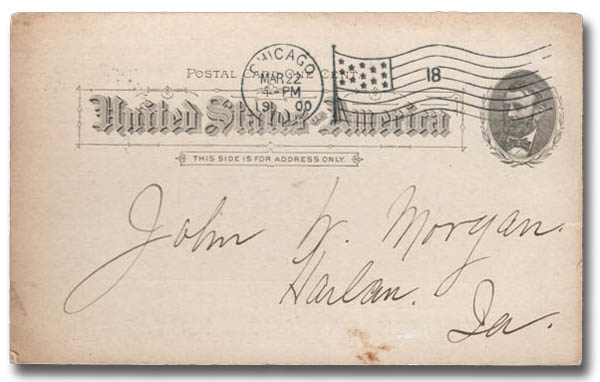 CHICAGO
MAR 22
4-PM
1900
18
POSTAL CARD ONE CENT.
United States of America
THIS SIDE IS FOR ADDRESS ONLY.
John W. Morgan.
Harlan.
Ia.